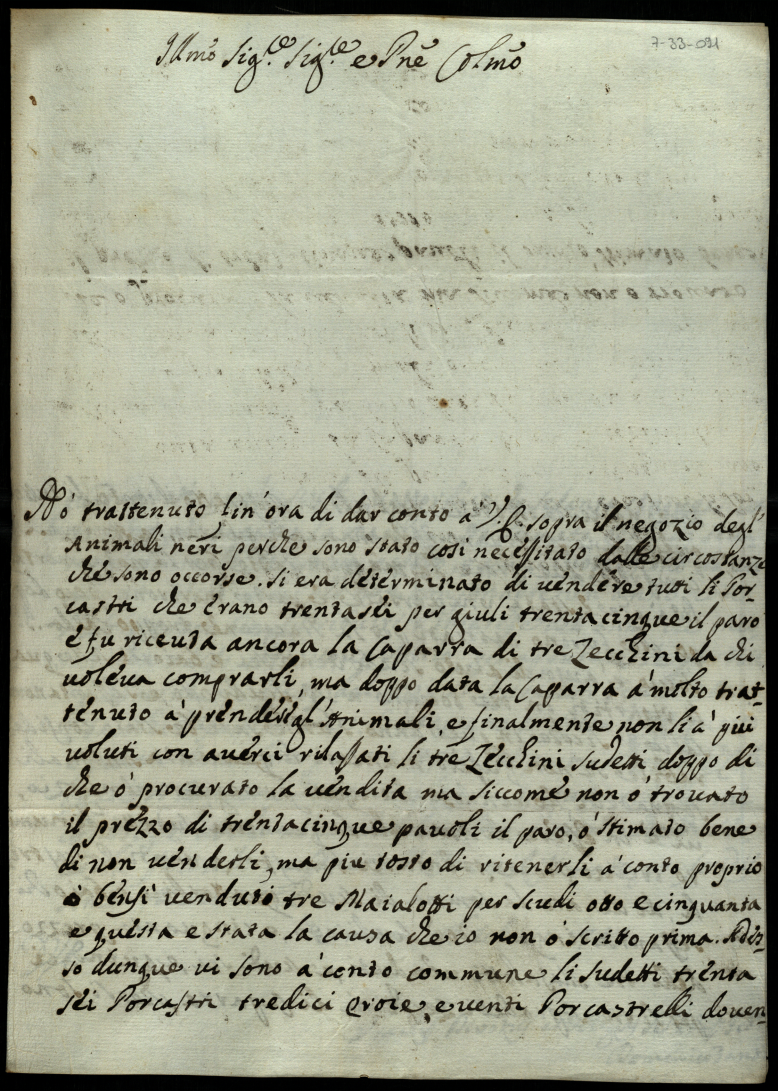 7-33-021
Illmo Sig.re Sig.re e Pne Colmo
Hò trattenuto sin'ora di dar conto à V.S. sopra il negozio degl'
Animali neri perche sono stato cosi necessitato dalle circostanze
che sono occorse. Si era determinato di vendere tutti li Por-
castri che erano trentasei per giuli trentacinque il paro
e fu riceuta ancora la Caparra di tre Zecchini da chi
voleva comprarli, ma doppo data la Caparra à molto trat-
tenuto à prendere gl'Animali, e finalmente non li à più
voluti con averci rilassati li tre Zecchini sudetti doppo di
che ò procurato la vendita ma siccome non ò trovato
il prezzo di trentacinque pavoli il paro, ò stimato bene
di non venderli, ma piu tosto di ritenerli à conto proprio
ò bensi venduti tre Maialotti per scudi otto e cinquanta
e questa e stata la causa che io non ò scritto prima. Ades-
so dunque vi sono à conto commune li sudetti trenta
sei Porcastri tredici troie, e venti Porcastrelli doven